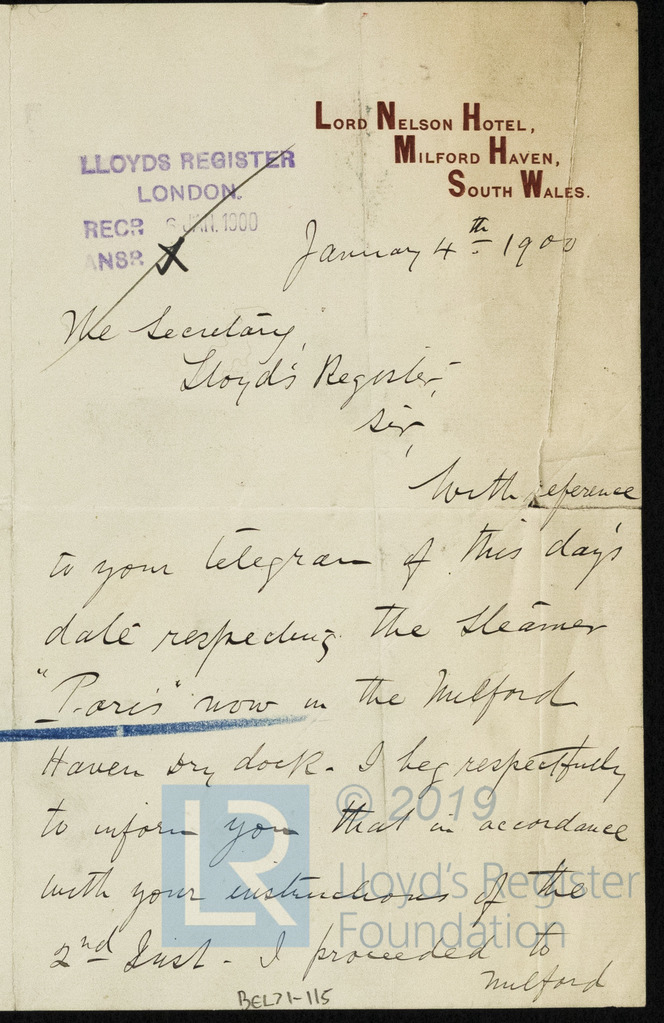 LORD NELSON HOTEL,
MILFORD HAVEN,
SOUTH WALES.
LLOYDS REGISTER
LONDON.
RECR 6 JAN. 1900
ANSR X
January 4th 1900
The Secretary,
Lloyd's Register,
Sir,
With reference
to your telegram of this day's
date respecting the Steamer
"Paris" now in the Milford
Haven dry dock. I beg respectfully
to inform you that in accordance
with your instructions of the
2nd Inst - I proceeded to
Milford
LR
© 2019
Lloyd's Register
Foundation
BEL71-115